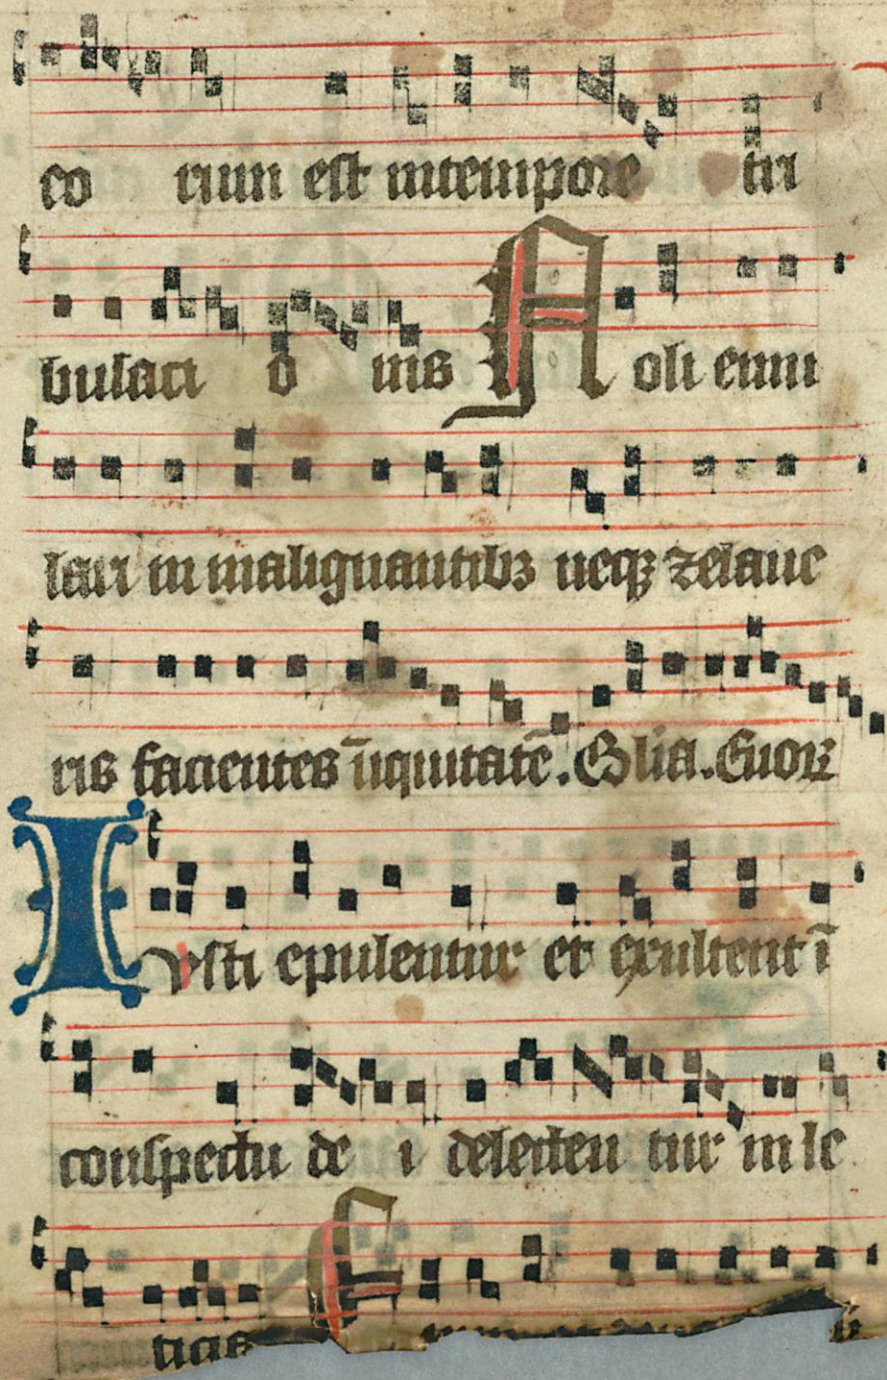 eo rum est in tempore tri
bulaci o nis Noli emu
lari in malignantibꝫ neqꝫ zelaue
ris facientes īiquitatē. Glia. Euoꝝ
Iusti epulentur et exultent ī
conspectu de i delecten tur in le
ticia E